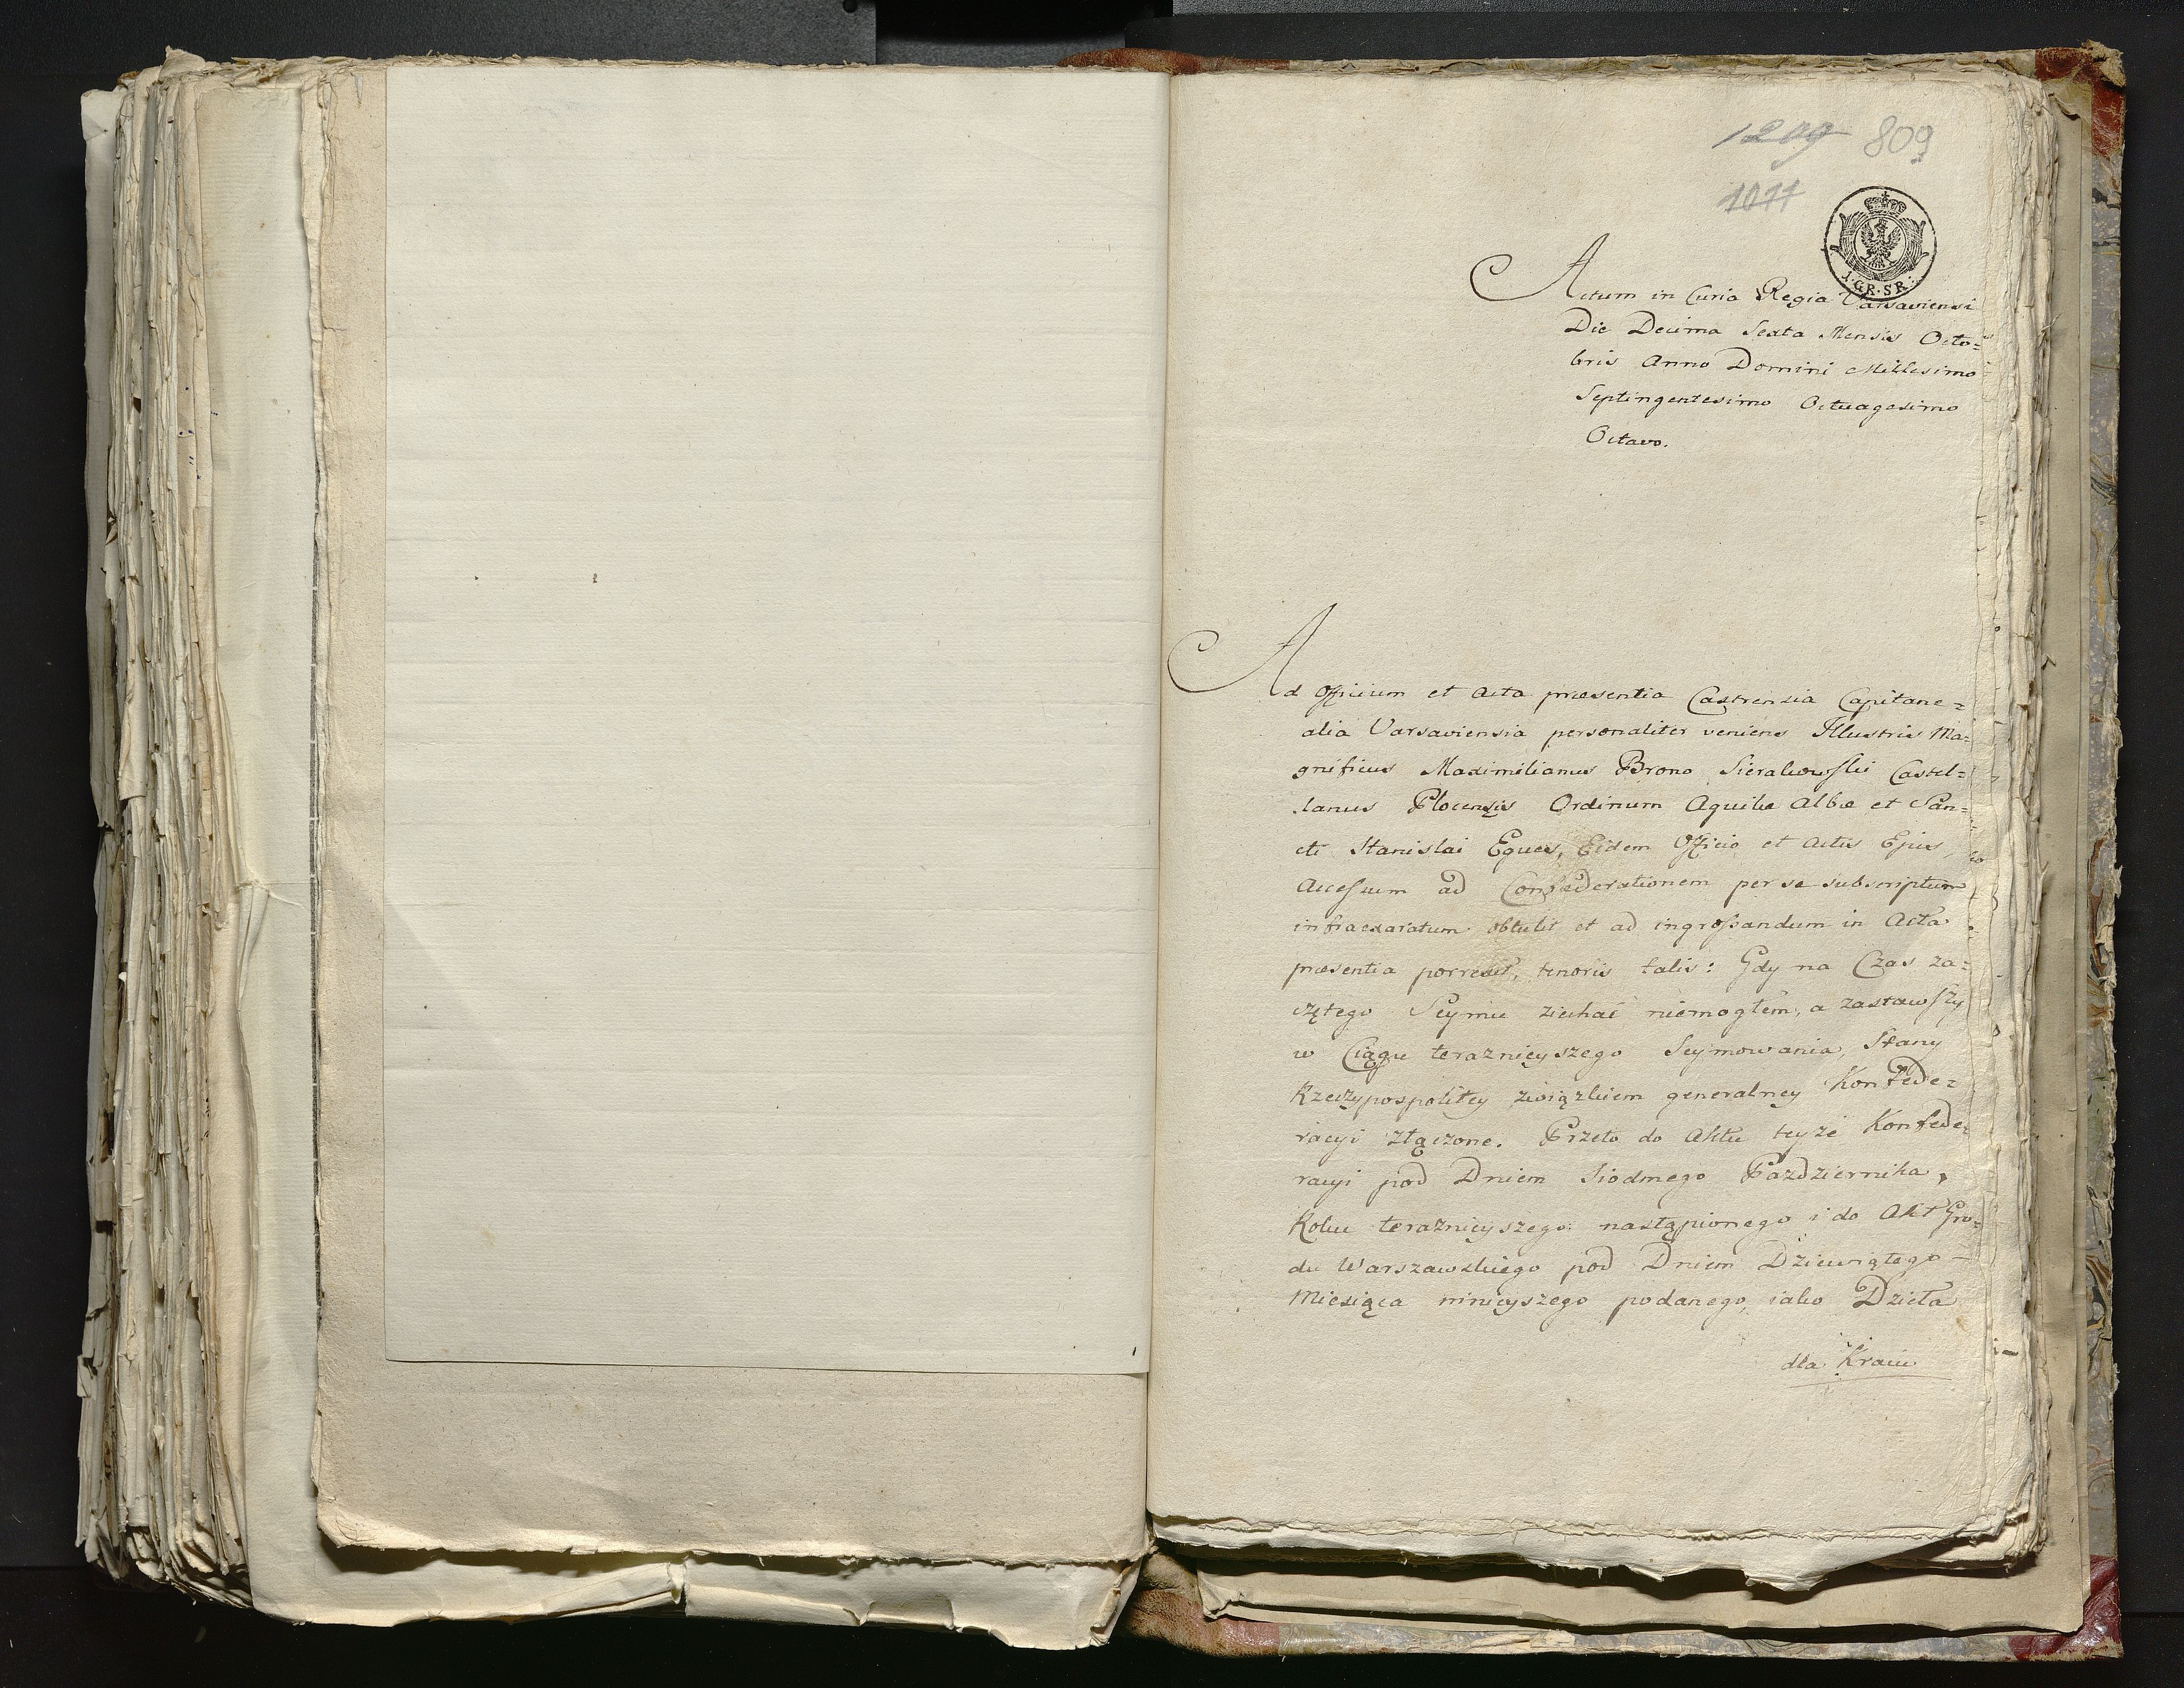 1209 809
1017
1·GR·SR·
Actum in Curia Regia Varsaviensi
Die Decima Sexta Mensis Octo=
bris Anno Domini Millesimo
Septingentesimo Octuagesimo
Octavo.
Ad Officium et Acta præsentia Castrensia Capitane=
alia Varsaviensia personaliter veniens Illustris Ma=
gnificus Maximilianus Brono Sierakowski Castel=
lanus Plocensis Ordinum Aquilæ Albæ et San=
cti Stanislai Eques, Eidem Officio et Actis Ejus,
Accessum ad Confæderationem per se subscriptum
infraexaratum obtulit et ad ingrossandum in Acta
præsentia porrexit, tenoris talis: Gdy na Czas za=
czętego Seymu ziechać niemogłem, a zastawszy
w Ciągu teraznieyszego Seymowania, Stany
Rzeczypospolitey związkiem generalney Konfede=
racyi złączone. Przeto do Aktu teyże Konfede=
racyi pod Dniem Siodmego Pazdziernika,
Roku teraznieyszego nastąpionego i do Akt Gro=
du Warszawskiego pod Dniem Dziewiątego
Miesiąca ninieyszego podanego, iako Dzieła
dla Kraiu